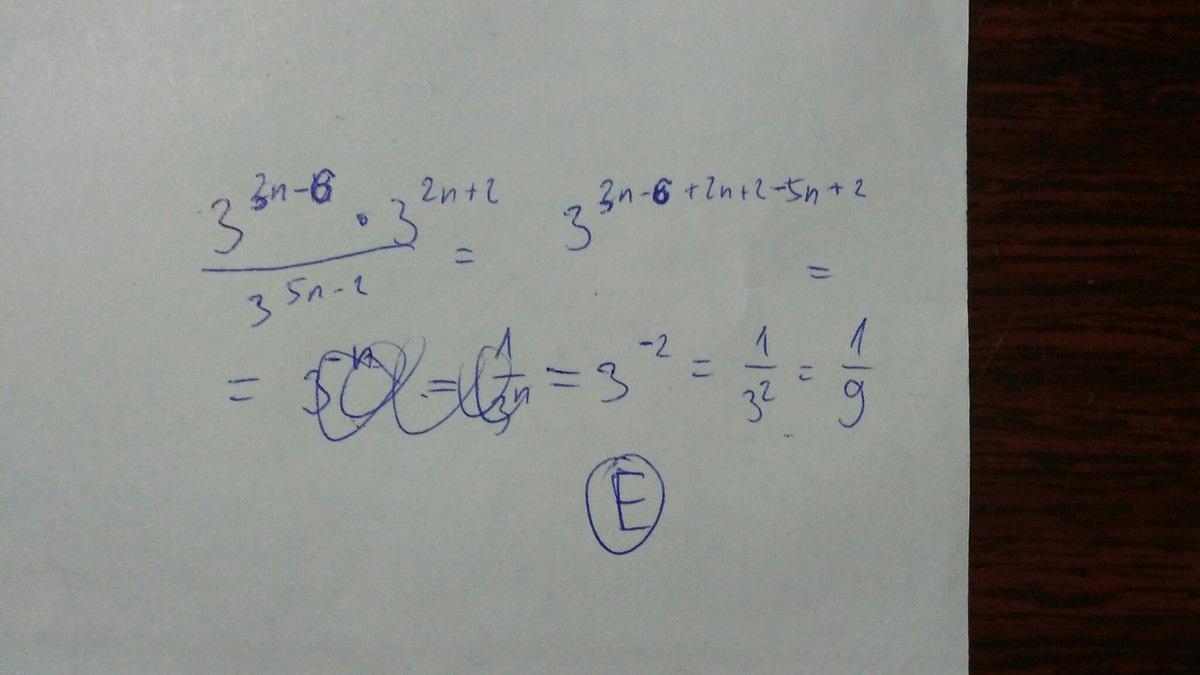 3^{3n-6} · 3^{2n+2} / 3^{5n-2} = 3^{3n-6+2n+2-5n+2} =
= = = 3^{-2} = 1/3^2 = 1/9
E